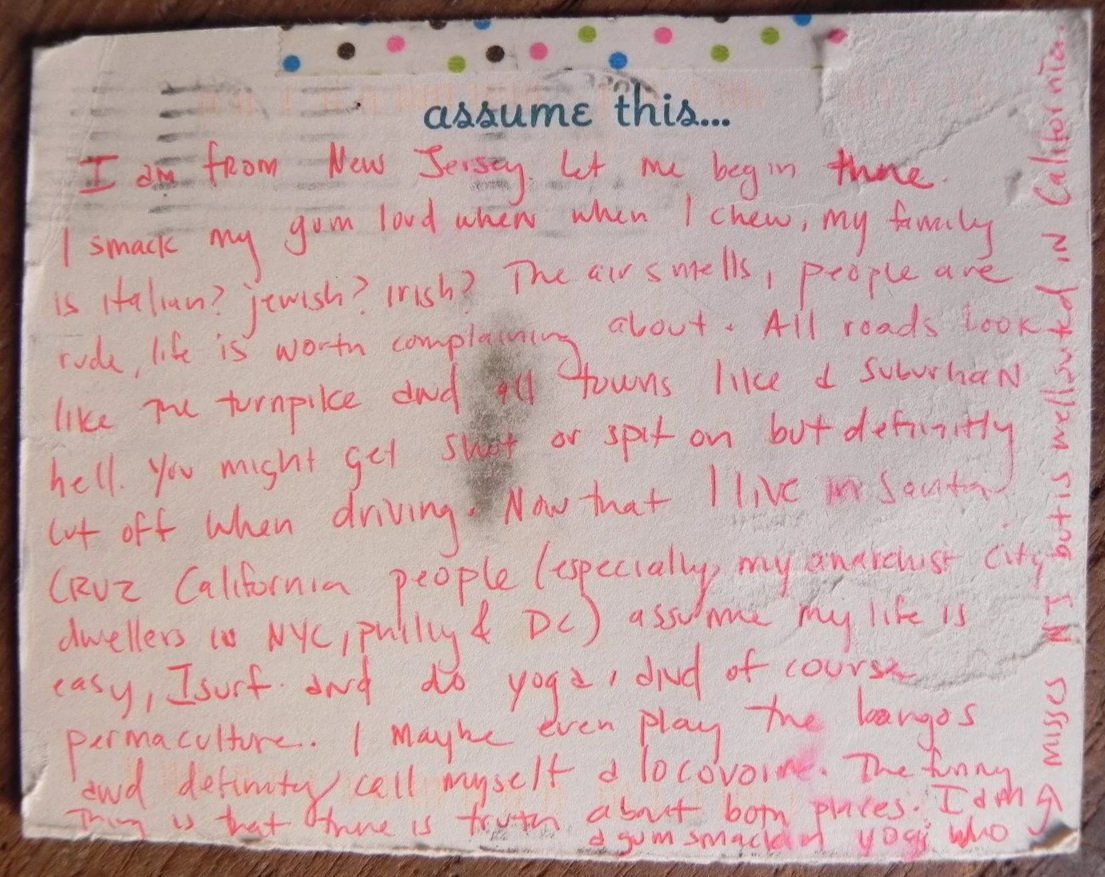 assume this...
I am from New Jersey. Let me begin there.
I smack my gum loud when when I chew, my family
is italian? jewish? irish? The air smells, people are
rude, life is worth complaining about. All roads look
like the turnpike and all towns like a suburban
hell. You might get shot or spit on but definitly
cut off when driving. Now that I live in Santa
Cruz California people (especially my anarchist city
dwellers in NYC, philly & DC) assume my life is
easy, I surf and do yoga, and of course
permaculture. I maybe even play the bongos
and definity call myself a locovoire. The funny
Thing is that there is truth about both places. I am
a gum smackin yogi who
misses NJ but is well suited in California.